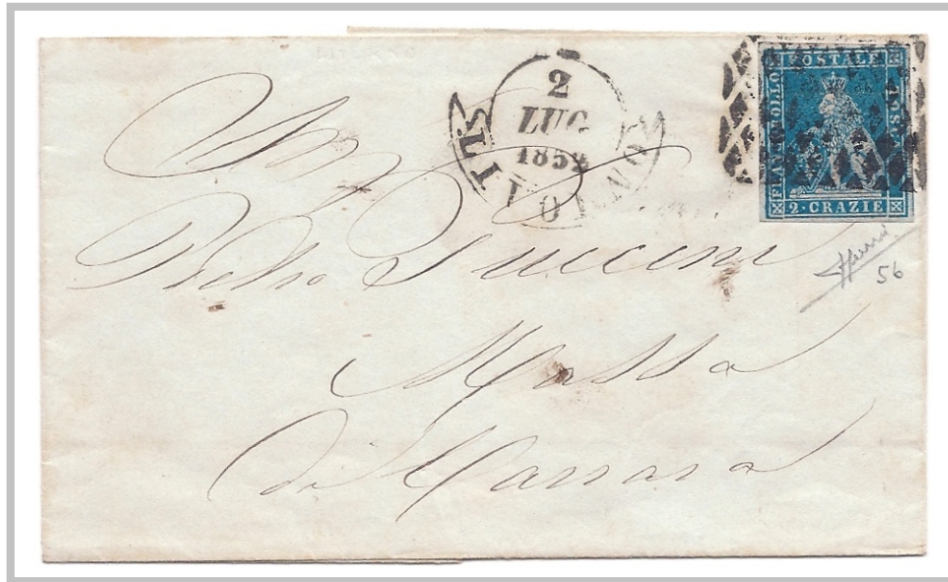 2
LUG
1852
LIVORNO
FRANCOBOLLO
POSTALE
TOSCANO
2·CRAZIE
56
Pietro Puccini
Massa
di Carrara